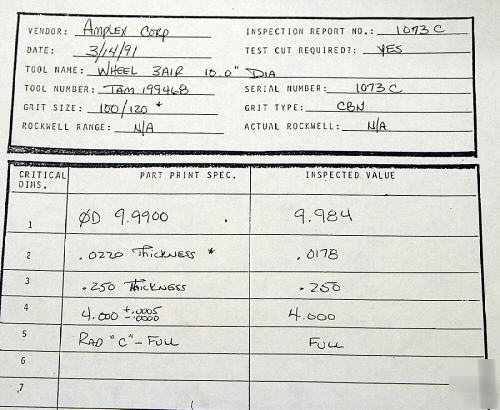 VENDOR: Amplex Corp INSPECTION REPORT NO.: 1073 C
DATE: 3/14/91 TEST CUT REQUIRED?: YES
TOOL NAME: WHEEL 3AIR 10.0" DIA
TOOL NUMBER: TAM 199468 SERIAL NUMBER: 1073 C
GRIT SIZE: 100/120 * GRIT TYPE: CBN
ROCKWELL RANGE: N/A ACTUAL ROCKWELL: N/A
CRITICAL DIMS. PART PRINT SPEC. INSPECTED VALUE
1 ØD 9.9900 9.984
2 .0220 THICKNESS * .0178
3 .250 THICKNESS .250
4 4.000 +.0005 -.0000 4.000
5 RAD "C" - FULL FULL
6
7